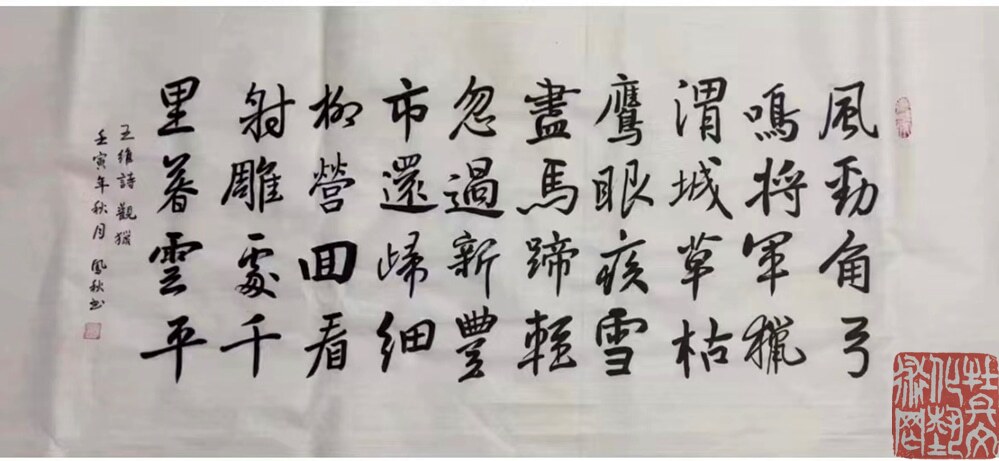 風勁角弓
鳴將軍獵
渭城草枯
鷹眼疾雪
盡馬蹄輕
忽過新豐
市還歸細
柳營回看
射雕處千
里暮雲平
王維詩觀獵
壬寅年秋月 風秋书